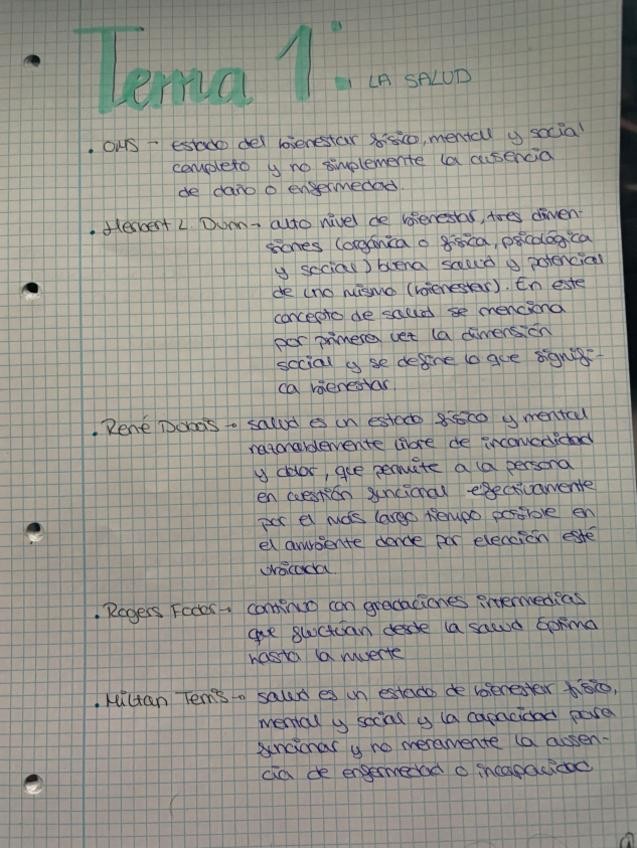 Tema 1: LA SALUD
. OMS - estado del bienestar físico, mental y social
completo y no simplemente la ausencia
de daño o enfermedad.
. Herbert L. Dunn → alto nivel de bienestar, tres dimen-
siones (orgánica o física, psicológica
y social) buena salud y potencial
de uno mismo (bienestar). En este
concepto de salud se menciona
por primera vez la dimensión
social y se define lo que signifi-
ca bienestar.
. René Dubos → salud es un estado físico y mental
razonablemente libre de incomodidad
y dolor, que permite a la persona
en cuestión funcional efectivamente
por el más largo tiempo posible en
el ambiente donde por elección esté
ubicada.
. Rogers Fodor → continuo con gradaciones intermedias
que fluctúan desde la salud óptima
hasta la muerte
. Miltan Terris → salud es un estado de bienestar físico,
mental y social y la capacidad para
funcionar y no meramente la ausen-
cia de enfermedad o incapacidad